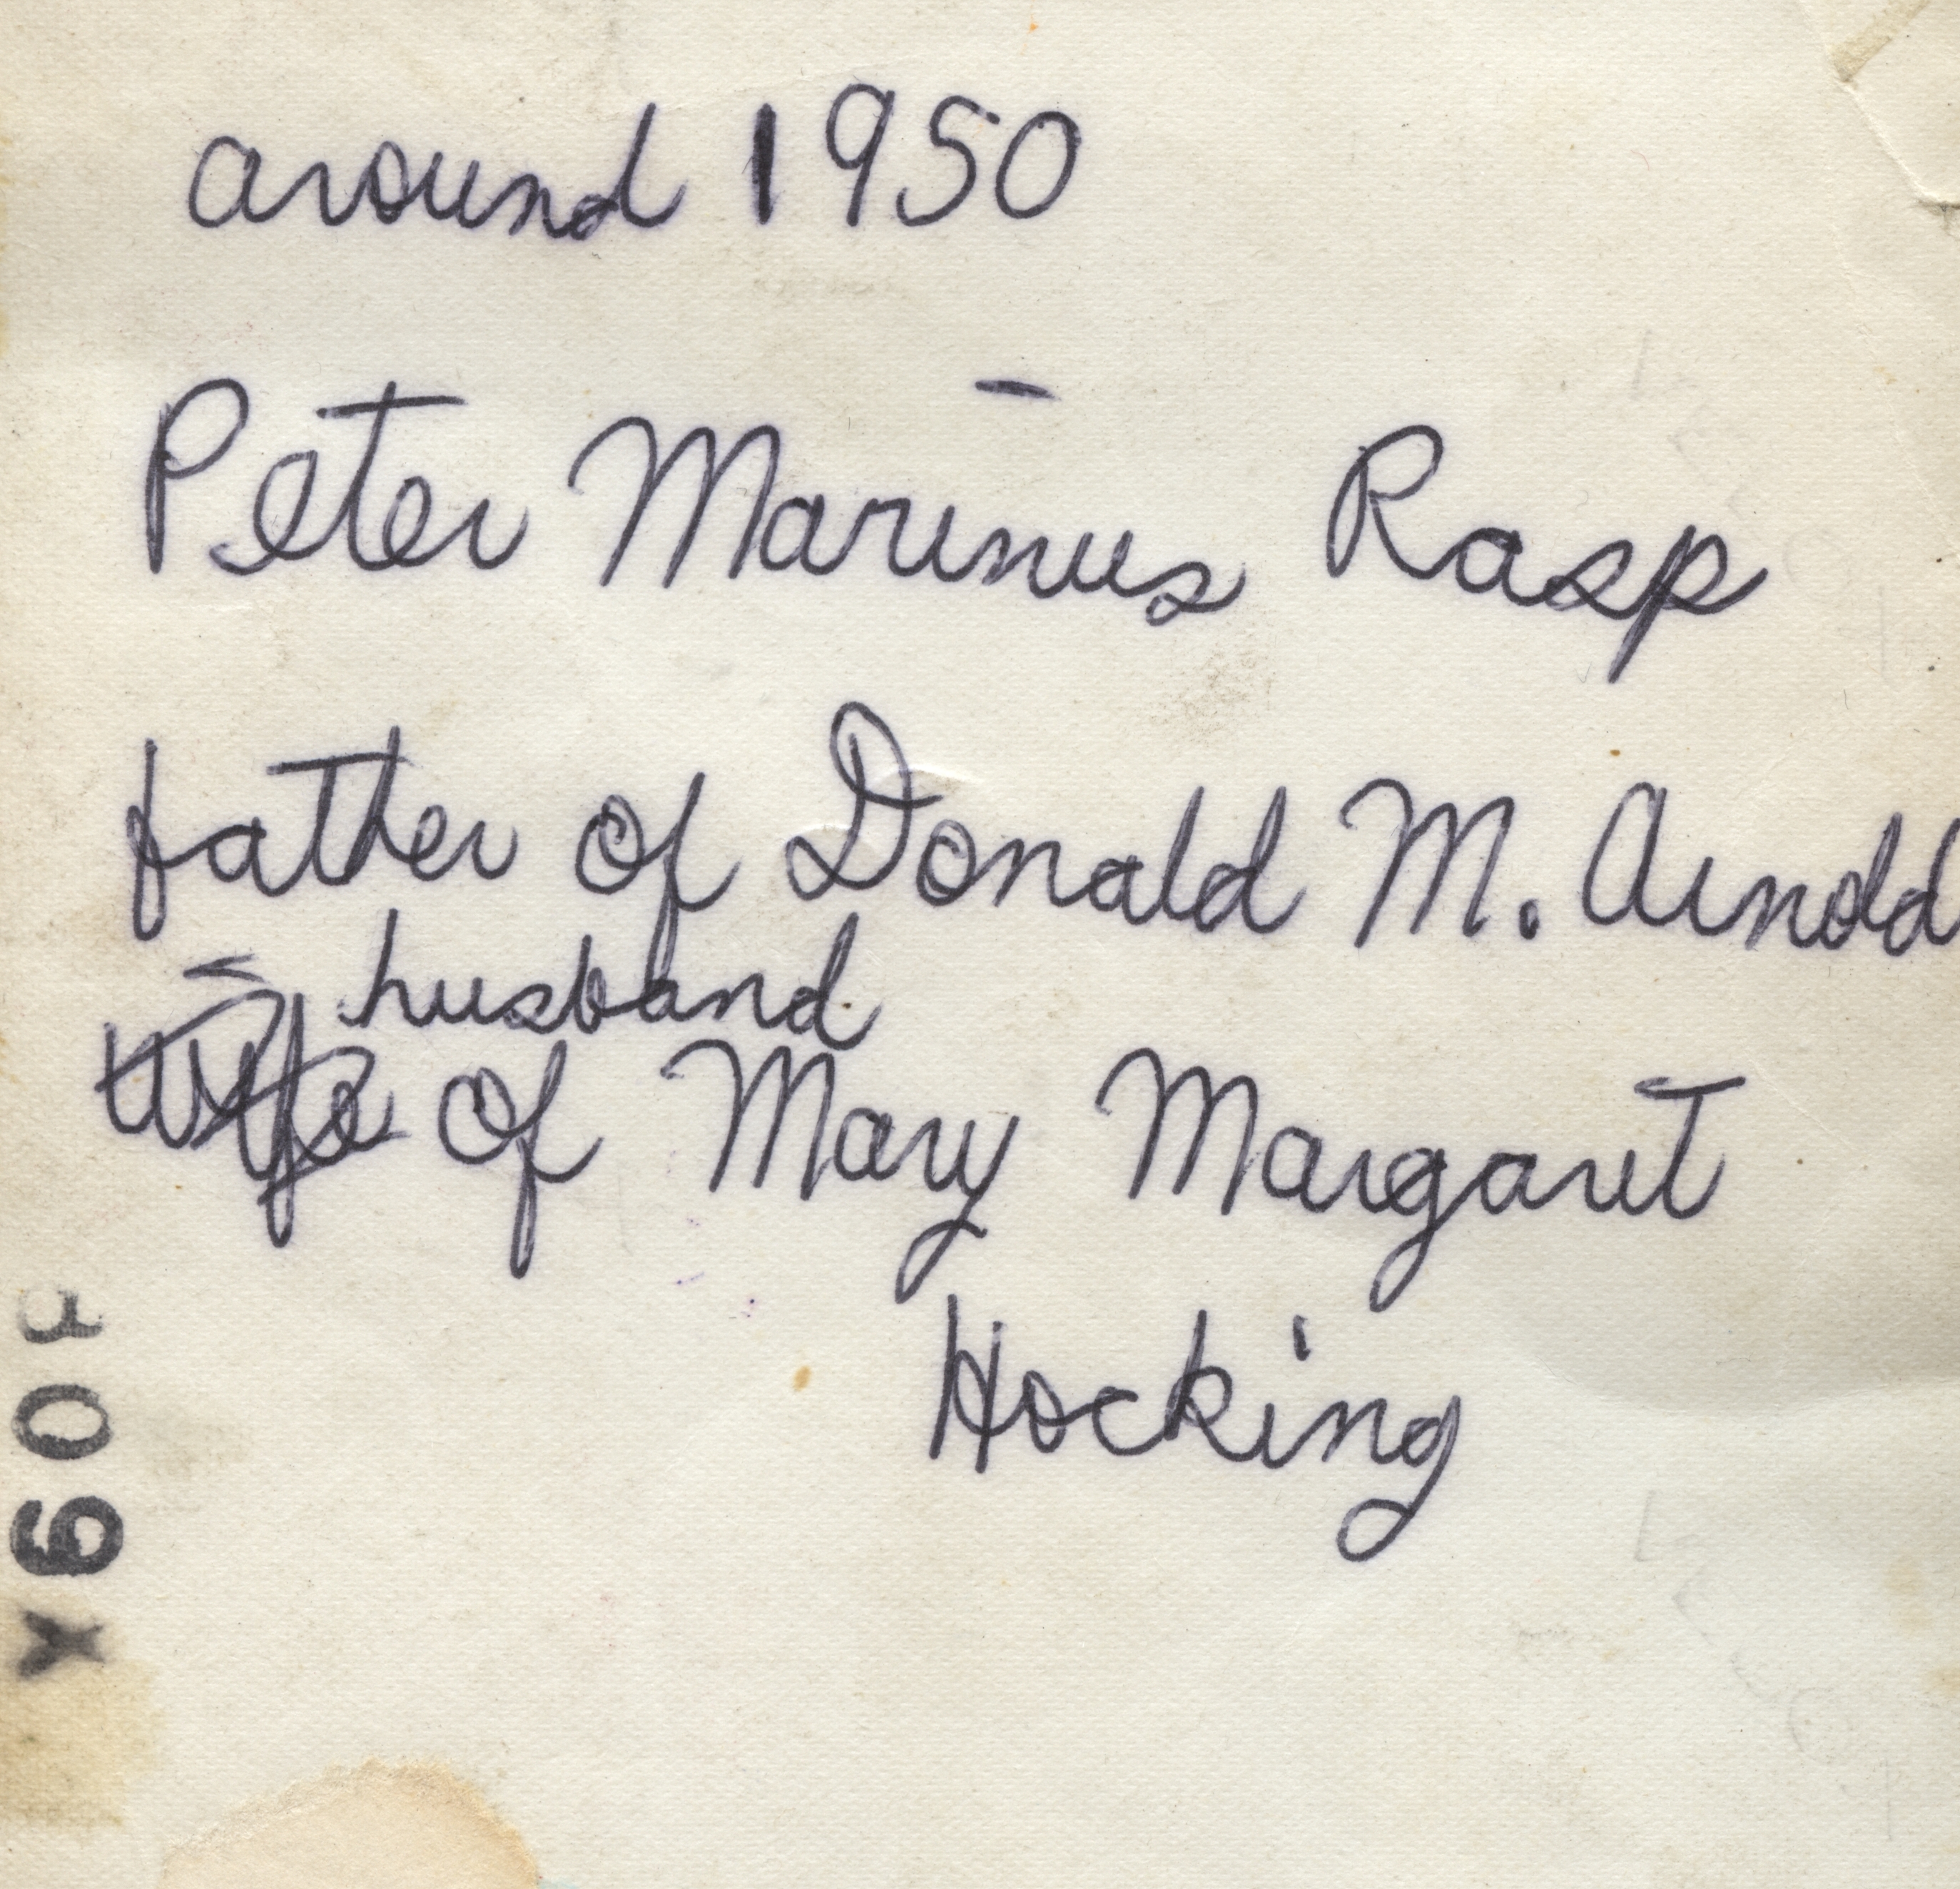 around 1950
Peter Marinus Rasp
father of Donald M. Arnold
husband
wife of Mary Margaret
Hocking